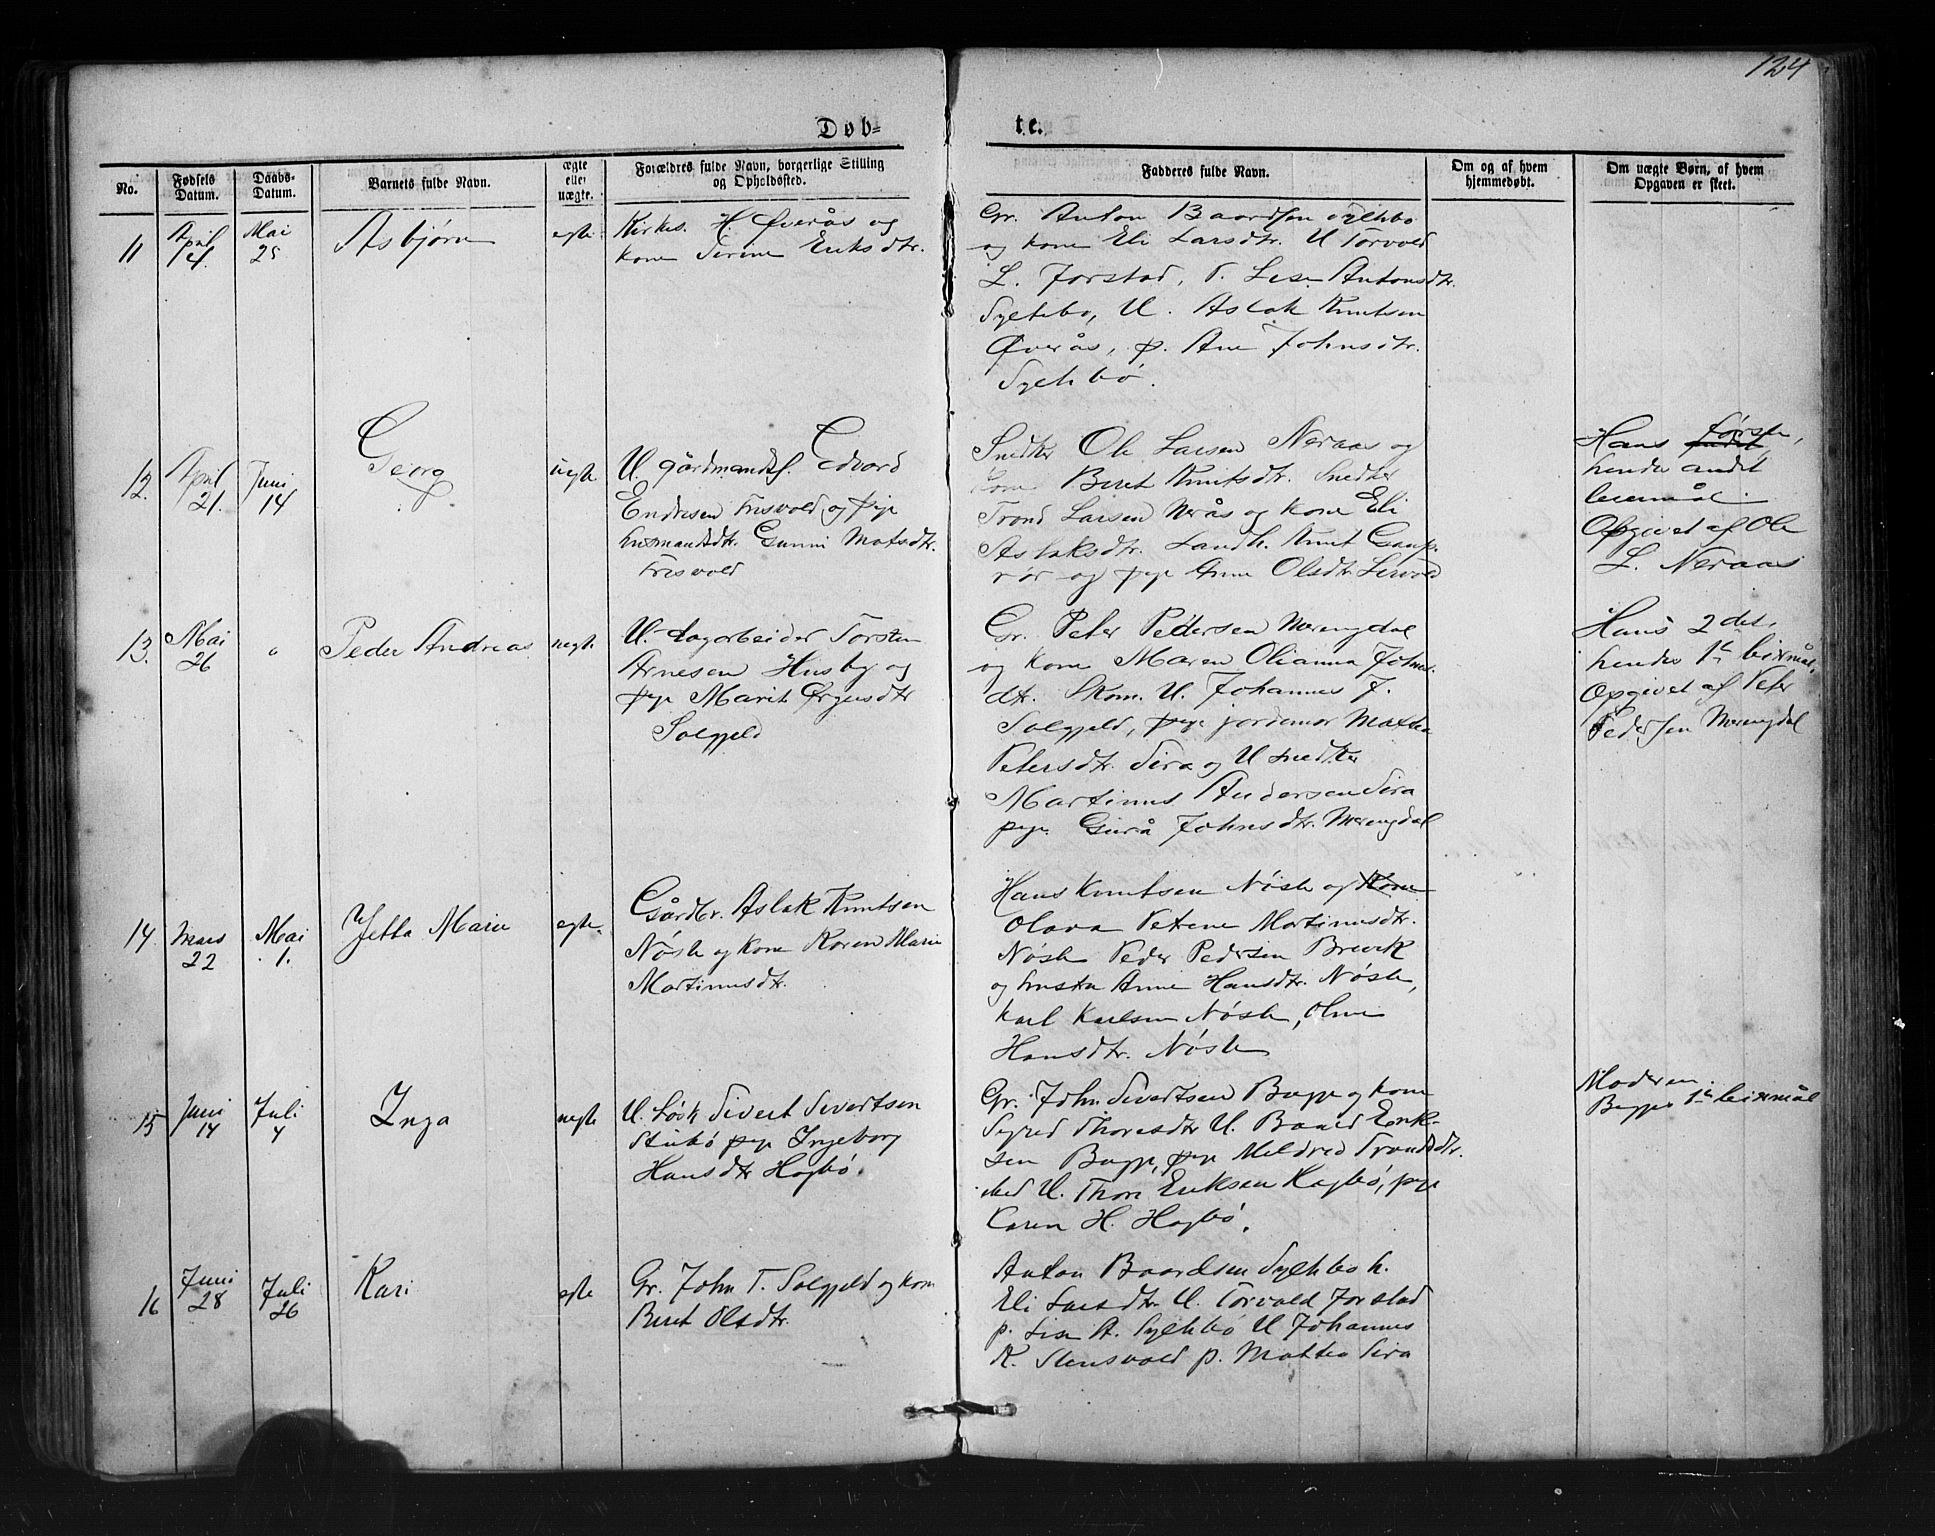 124
Døb-
te.
No.
Fødsels Datum.
Daabs-Datum.
Barnets fulde Navn.
ægte eller uægte.
Forældres fulde Navn, borgerlige Stilling og Opholdssted.
Fadderes fulde Navn.
Om og af hvem hjemmedøbt.
Om uægte Børn, af hvem Opgaven er skeet.
11
April
4.
Mai
25
Asbjørn
egte
Kirkes. H. Øverås og
kone Serine Eriksdtr.
Gr. Anton Baardsen Syltebø
og kone Eli Larsdtr. U Torvold
L. Forstad, P. Lise Antonsdtr.
Syltebø, U. Aslak Knutsen
Øverås, p. Ane Johnsdtr.
Syltebø.
12.
April
21.
Juni
14
Georg
uegte
U. gårdmands. Edvard
Endresen Frisvold og pige
husmandsdtr. Gunni Matsdtr.
Frisvold
Snedker Ole Larsen Neraas og
kone Beret Knutsdtr. Snedker
Trond Larsen Nerås og kone Eli
Aslaksdtr. Landh. Knut Gaup-
rør og pige Anne Olsdtr. Lervold
Hans første,
hendes andet
leiermål.
Opgivet af Ole
L. Neraas
13.
Mai
26
"
Peder Andreas
uegte
U. dagarbeider Torsten
Arnesen Husby og
pige Marit Ørgensdtr
Solgjeld
Gr. Peter Pedersen Merengdal
og kone Maren Olianna Johns-
dtr. Skom. U. Johannes J.
Solgjeld, pige jordemor Mattea
Petersdtr. Sira og U snedker
Martinus Andersen Sira
pige Gurå Johnsdtr. Merengdal
Hans 2det,
hendes 1te leiermål.
Opgivet af Peter
Pedersen Merengdal
14.
Mars
22
Mai
1.
Jetta Marie
egte
Gårdbr. Aslak Knutsen
Nøste og kone Karen Marie
Martinusdtr.
Hans Knutsen Nøste og kone
Olava Petrine Martinusdtr.
Nøste Peder Pedersen Brevik
og hustru Anne Hansdtr. Nøste,
Karl Karlsen Nøste, Oline
Hansdtr. Nøste
15
Juni
14
Juli
4
Inga
uegte
U. Løsk Sivert Sivertsen
Stubø pige Ingeborg
Hansdtr Hagbø.
Gr. John Sivertsen Bugge og kone
Sigrid Thoresdtr U. Baard Erik-
sen Bugge, pige Mildred Trondsdtr.
sted U. Thore Eriksen Hagbø, pige
Karen H. Hagbø.
Moderen.
Begges 1te leiermål
16
Juni
28
Juli
26
Kari
egte
Gr. John T. Solgjeld og kone
Beret Olsdtr.
Anton Baardsen Syltebø k.
Eli Larsdtr. U. Torvald Forstad
p. Lise A. Syltebø U Johannes
K. Stensvold p. Mattea Sira